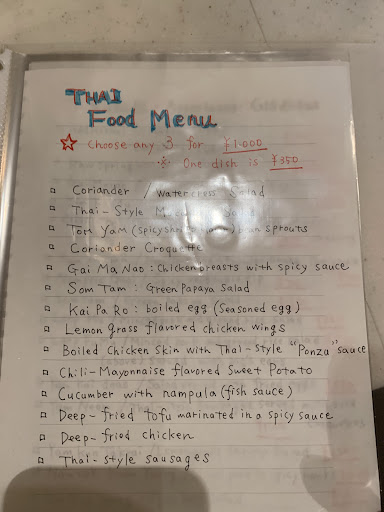 THAI
Food Menu
☆ Choose any 3 for ¥1,000
※ One dish is ¥350
□ Coriander / Watercress Salad
□ Thai-Style Salad
□ Tom Yam (Spicy ) bean sprouts
□ Coriander Croquette
□ Gai Ma Nao : Chicken breasts with spicy sauce
□ Som Tam : Green Papaya Salad
□ Kai Pa Ro : boiled egg (Seasoned egg)
□ Lemon grass flavored chicken wings
□ Boiled Chicken Skin with Thai-Style "Ponzu" sauce
□ Chili-Mayonnaise flavored Sweet Potato
□ Cucumber with nampula (fish sauce)
□ Deep-fried tofu marinated in a spicy sauce
□ Deep-fried chicken
□ Thai-style sausages